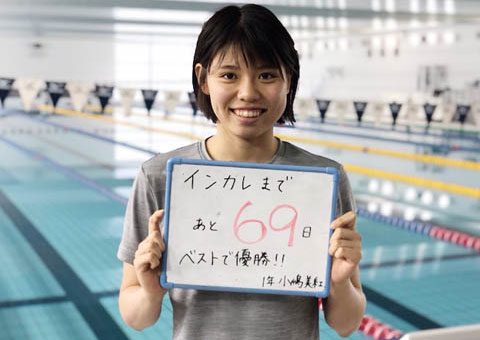 インカレまで
あと 69 日
ベストで優勝!!
1年 小嶋美紅